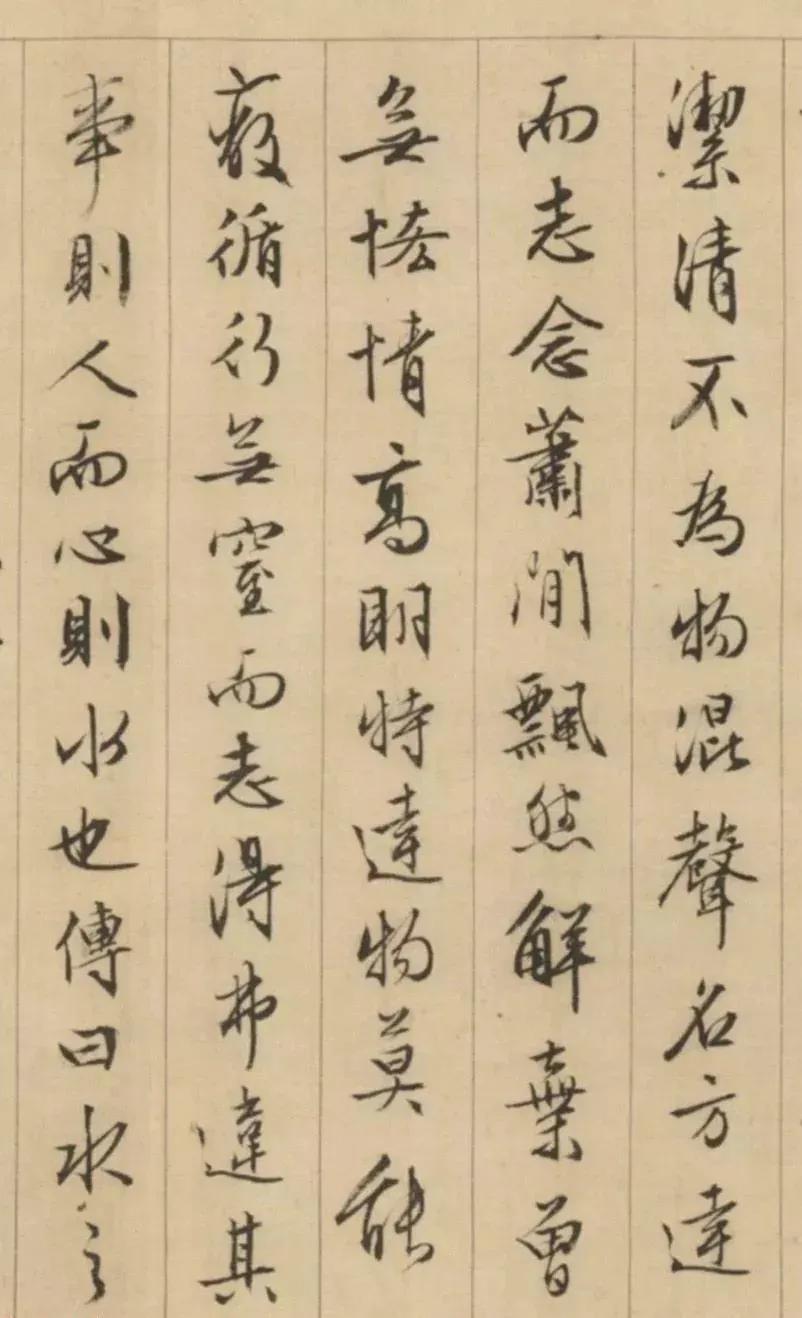 潔清不為物混聲名方達
而志念蕭閒飄然解棄曾
無恡情高朗特達物莫能
蔽循行無窒而志得弗違其
事則人而心則水也傳曰水之